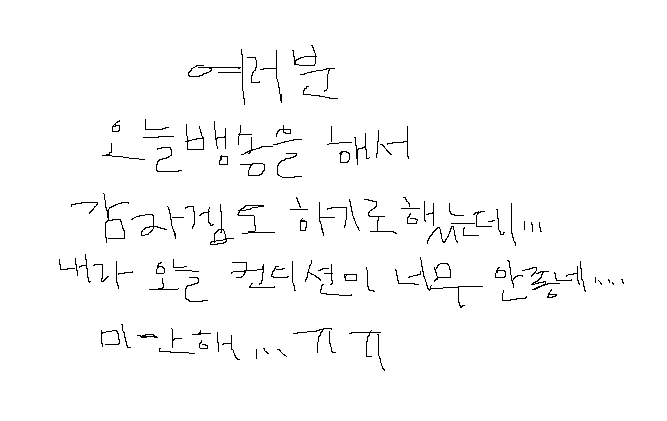 여러분
오늘뱅송을 해서
감자겜도 하기로했는데...
내가 오늘 컨디션이 너무 안좋네...
미안해... ㅠㅠ